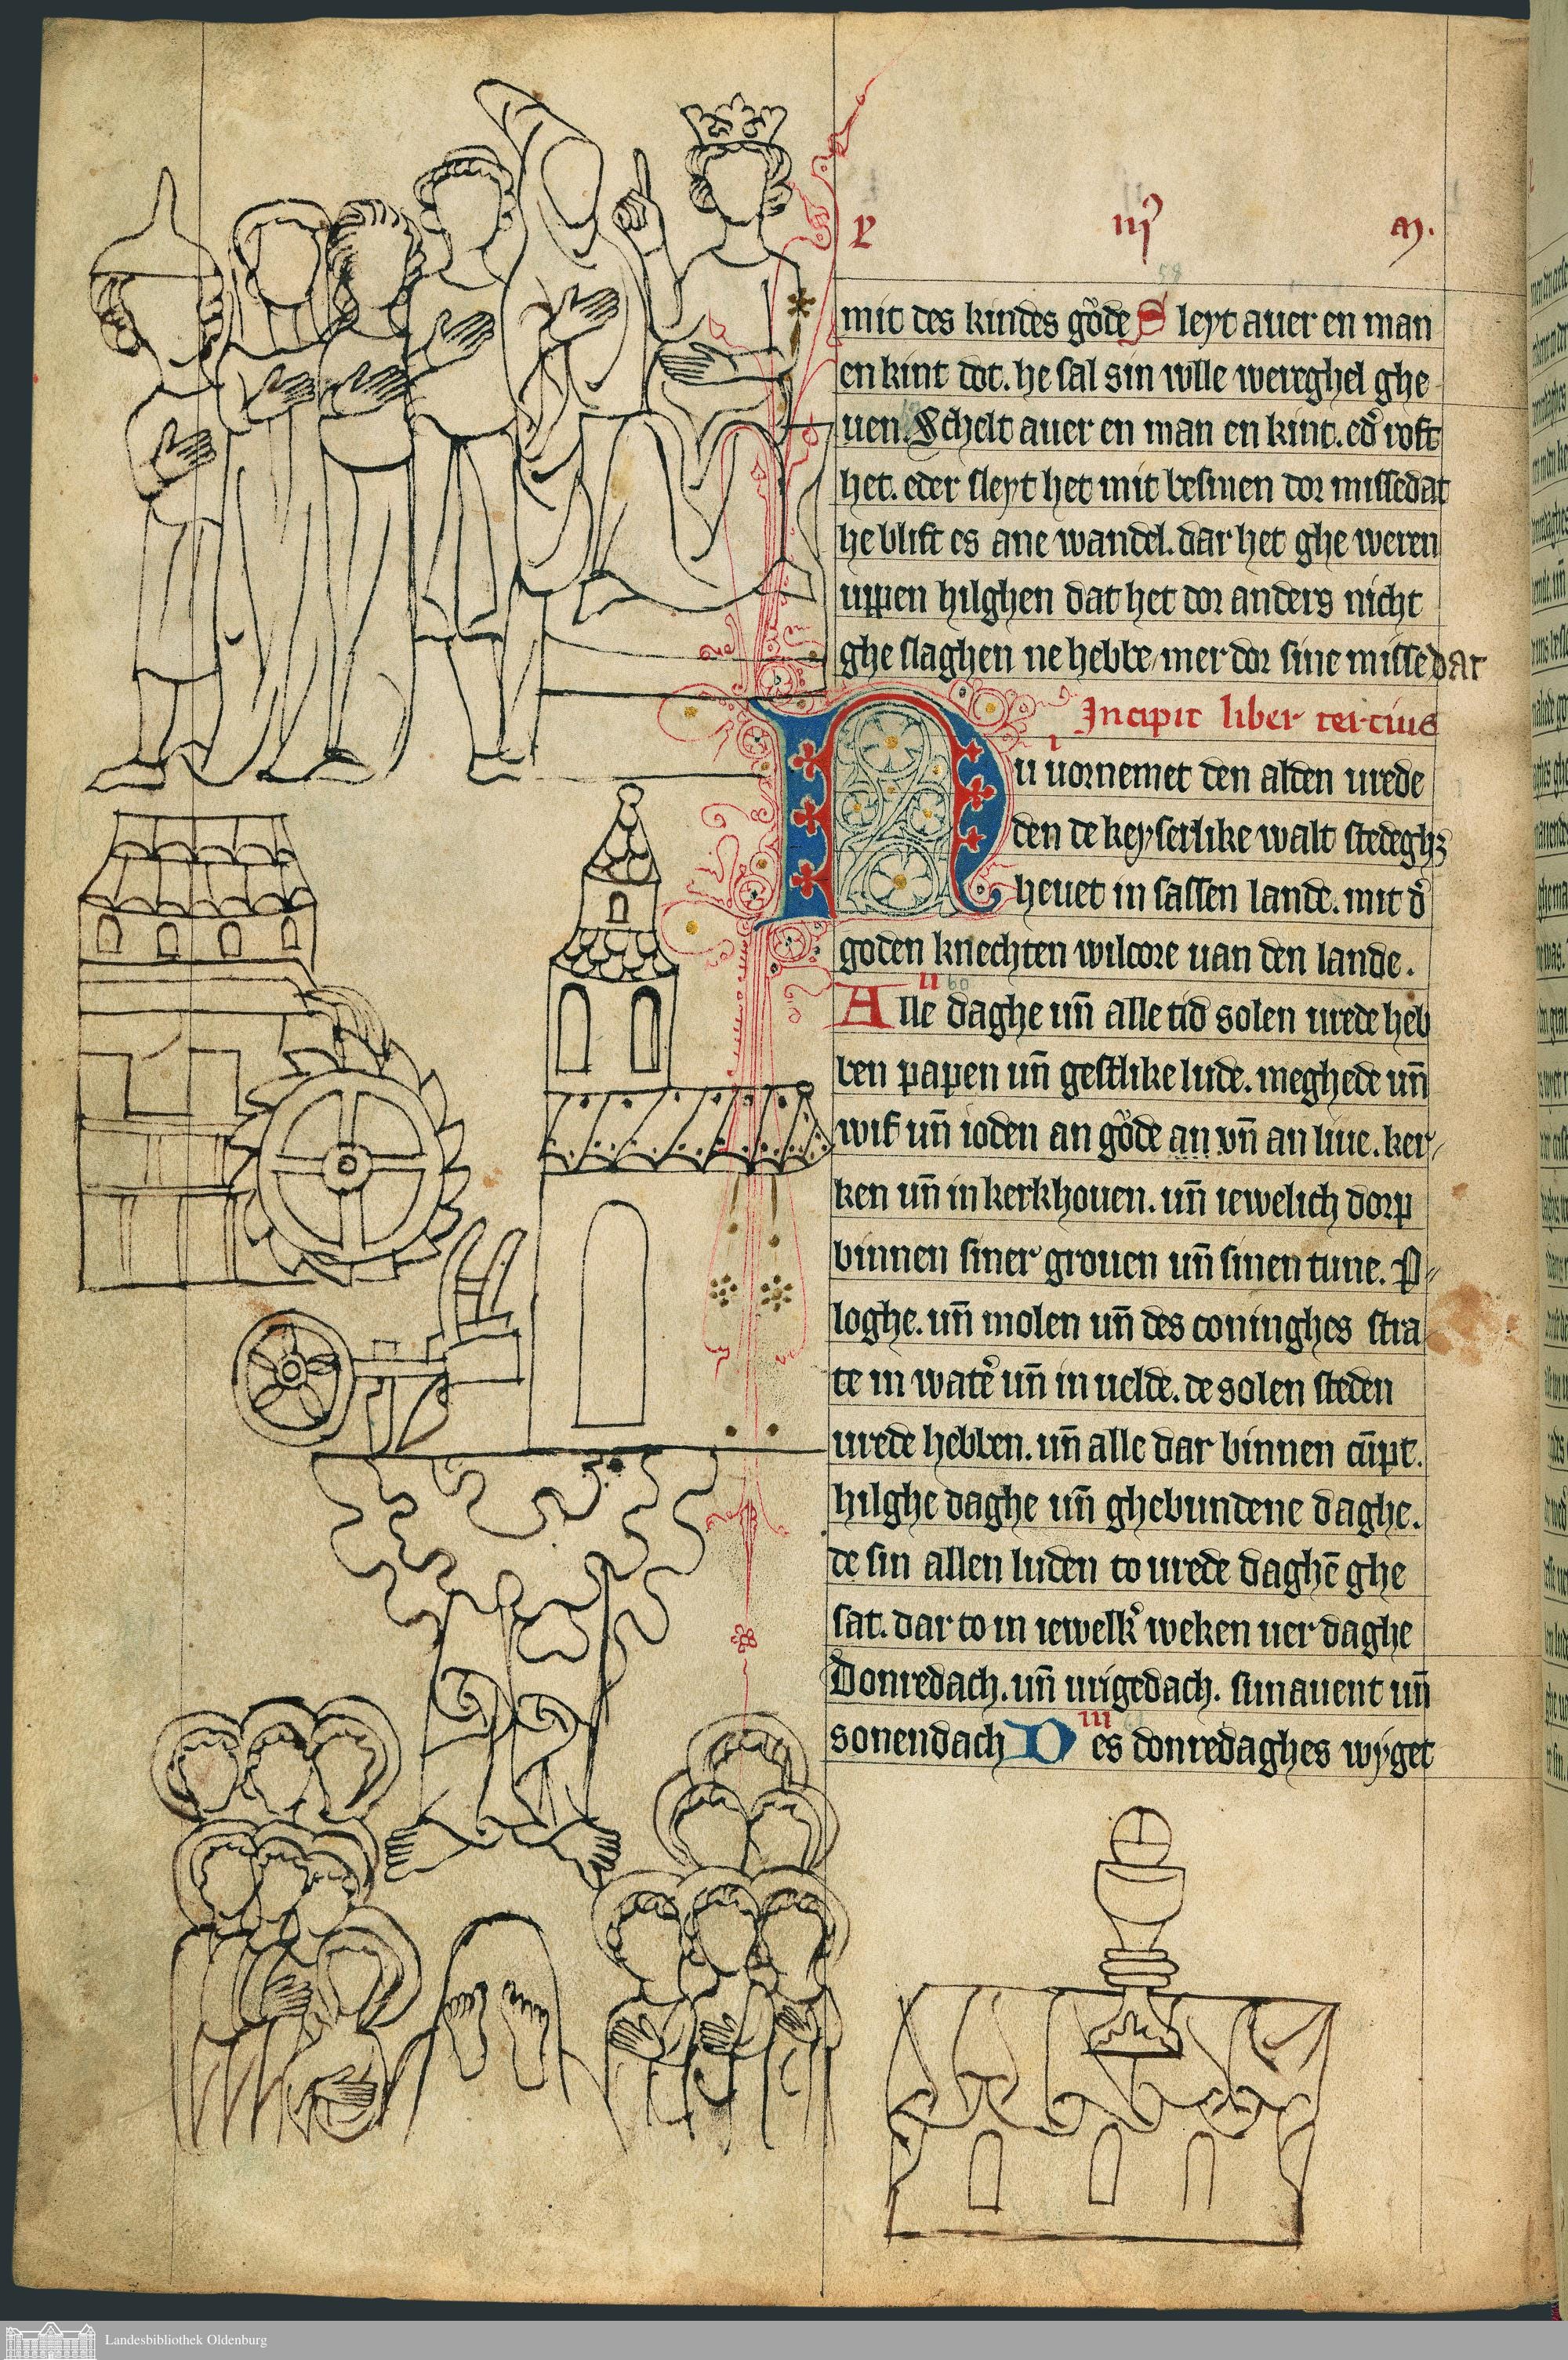 P iijͦ m.
mit des kindes gͦode Sleyt auer en man
en kint dot. he sal sin wlle wereghel ghe
uen. Schelt auer en man en kint. edͦ roft
het. eder sleyt het mit besmen dor missedat
he blift es ane wandel. dar het ghe weren
uppen hilghen dat het dor anders nicht
ghe slaghen ne hebbe/mer dor sine missedat
Incipit liber tercius
i
Nu uornemet den alden urede
den de keyserlike walt stedegh
heuet in sassen lande. mit dͦ
goden knechten wilcore uan den lande.
ii 60
Alle daghe un̄ alle tid solen urede heb
ben papen un̄ gestlike lude. meghede un̄
wif un̄ ioden an gͦode an vn̄ an liue. ker/
ken un̄ in kerkhouen. un̄ iewelich dorp
binnen siner grouen un̄ sinen tune. P//
loghe. un̄ molen un̄ des coninghes stra
te in watͤ un̄ in uelde. de solen steden
urede hebben. un̄ alle dar binnen cūpt.
hilghe daghe un̄ ghebundene daghe.
de sin allen luden to urede daghē ghe
sat. dar to in iewelkͬ weken uer daghe
Donredach. un̄ urigedach. sunauent un̄
iii
sonendach Des donredaghes wyget
Landesbibliothek Oldenburg